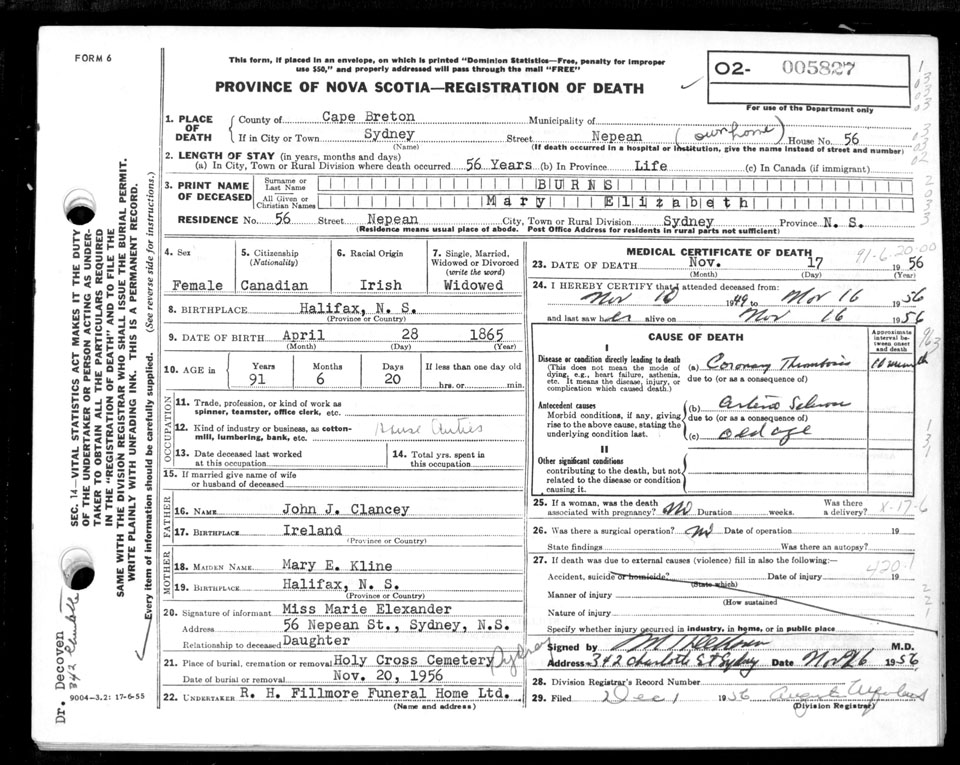 FORM 6
This form, if placed in an envelope, on which is printed "Dominion Statistics—Free, penalty for improper
use $50," and properly addressed will pass through the mail "FREE"
PROVINCE OF NOVA SCOTIA—REGISTRATION OF DEATH
O2- 005827
For use of the Department only
1. PLACE OF DEATH
County of Cape Breton Municipality of
If in City or Town Sydney Street Nepean (own home) House No. 56
(Name) (If death occurred in a hospital or institution, give the name instead of street and number)
2. LENGTH OF STAY (in years, months and days)
(a) In City, Town or Rural Division where death occurred 56 Years (b) In Province Life (c) In Canada (if immigrant)
3. PRINT NAME OF DECEASED
Surname or Last Name BURNS
All Given or Christian Names Mary Elizabeth
RESIDENCE No. 56 Street Nepean City, Town or Rural Division Sydney Province N. S.
(Residence means usual place of abode. Post Office Address for residents in rural parts not sufficient)
4. Sex
Female
5. Citizenship
(Nationality)
Canadian
6. Racial Origin
Irish
7. Single, Married,
Widowed or Divorced
(write the word)
Widowed
8. BIRTHPLACE Halifax, N. S.
(Province or Country)
9. DATE OF BIRTH April 28 1865
(Month) (Day) (Year)
10. AGE in
Years Months Days If less than one day old
91 6 20 hrs. or min.
OCCUPATION
11. Trade, profession, or kind of work as
spinner, teamster, office clerk, etc.
12. Kind of industry or business, as cotton-
mill, lumbering, bank, etc. House duties
13. Date deceased last worked
at this occupation
14. Total yrs. spent in
this occupation
15. If married give name of wife
or husband of deceased
FATHER
16. NAME John J. Clancey
17. BIRTHPLACE Ireland
(Province or Country)
MOTHER
18. MAIDEN NAME Mary E. Kline
19. BIRTHPLACE Halifax, N. S.
(Province or Country)
20. Signature of informant Miss Marie Elexander
Address 56 Nepean St., Sydney, N.S.
Relationship to deceased Daughter
21. Place of burial, cremation or removal Holy Cross Cemetery Sydney
Date of burial or removal Nov. 20, 1956
22. UNDERTAKER R. H. Fillmore Funeral Home Ltd.
(Name and address)
MEDICAL CERTIFICATE OF DEATH
91-6-20-00
23. DATE OF DEATH Nov. 17 1956
(Month) (Day) (Year)
24. I HEREBY CERTIFY that I attended deceased from:
Nov 10 1949 to Nov 16 1956
and last saw her alive on Nov 16 1956
CAUSE OF DEATH
Approximate interval between onset and death
I
Disease or condition directly leading to death
(This does not mean the mode of
dying, e.g., heart failure, asthenia,
etc. It means the disease, injury, or
complication which caused death.
(a) Coronary Thrombosis
due to (or as a consequence of)
Antecedent causes
Morbid conditions, if any, giving
rise to the above cause, stating the
underlying condition last.
(b) Arterio Sclerosis
due to (or as a consequence of)
(c) old age
II
Other significant conditions
contributing to the death, but not
related to the disease or condition
causing it.
25. If a woman, was the death
associated with pregnancy? No Duration weeks. Was there
a delivery?
X-17-6
26. Was there a surgical operation? No Date of operation 19
State findings Was there an autopsy?
27. If death was due to external causes (violence) fill in also the following:—
420-1
Accident, suicide or homicide? Date of injury 19
(State which)
Manner of injury
(How sustained
Nature of injury
Specify whether injury occurred in industry, in home, or in public place
Signed by M.D.
Address 342 Charlotte St Sydney Date Nov 26 1956
28. Division Registrar's Record Number
29. Filed Dec 1 1956
(Division Registrar)
SEC. 14—VITAL STATISTICS ACT MAKES IT THE DUTY
OF THE UNDERTAKER OR PERSON ACTING AS UNDER-
TAKER TO OBTAIN ALL THE PARTICULARS REQUIRED
IN THE "REGISTRATION OF DEATH" AND TO FILE THE
SAME WITH THE DIVISION REGISTRAR WHO SHALL ISSUE THE BURIAL PERMIT.
WRITE PLAINLY WITH UNFADING INK. THIS IS A PERMANENT RECORD.
Every item of information should be carefully supplied. (See reverse side for instructions.)
Dr. Decoven
342 Charlotte
9004-3.2: 17-6-55